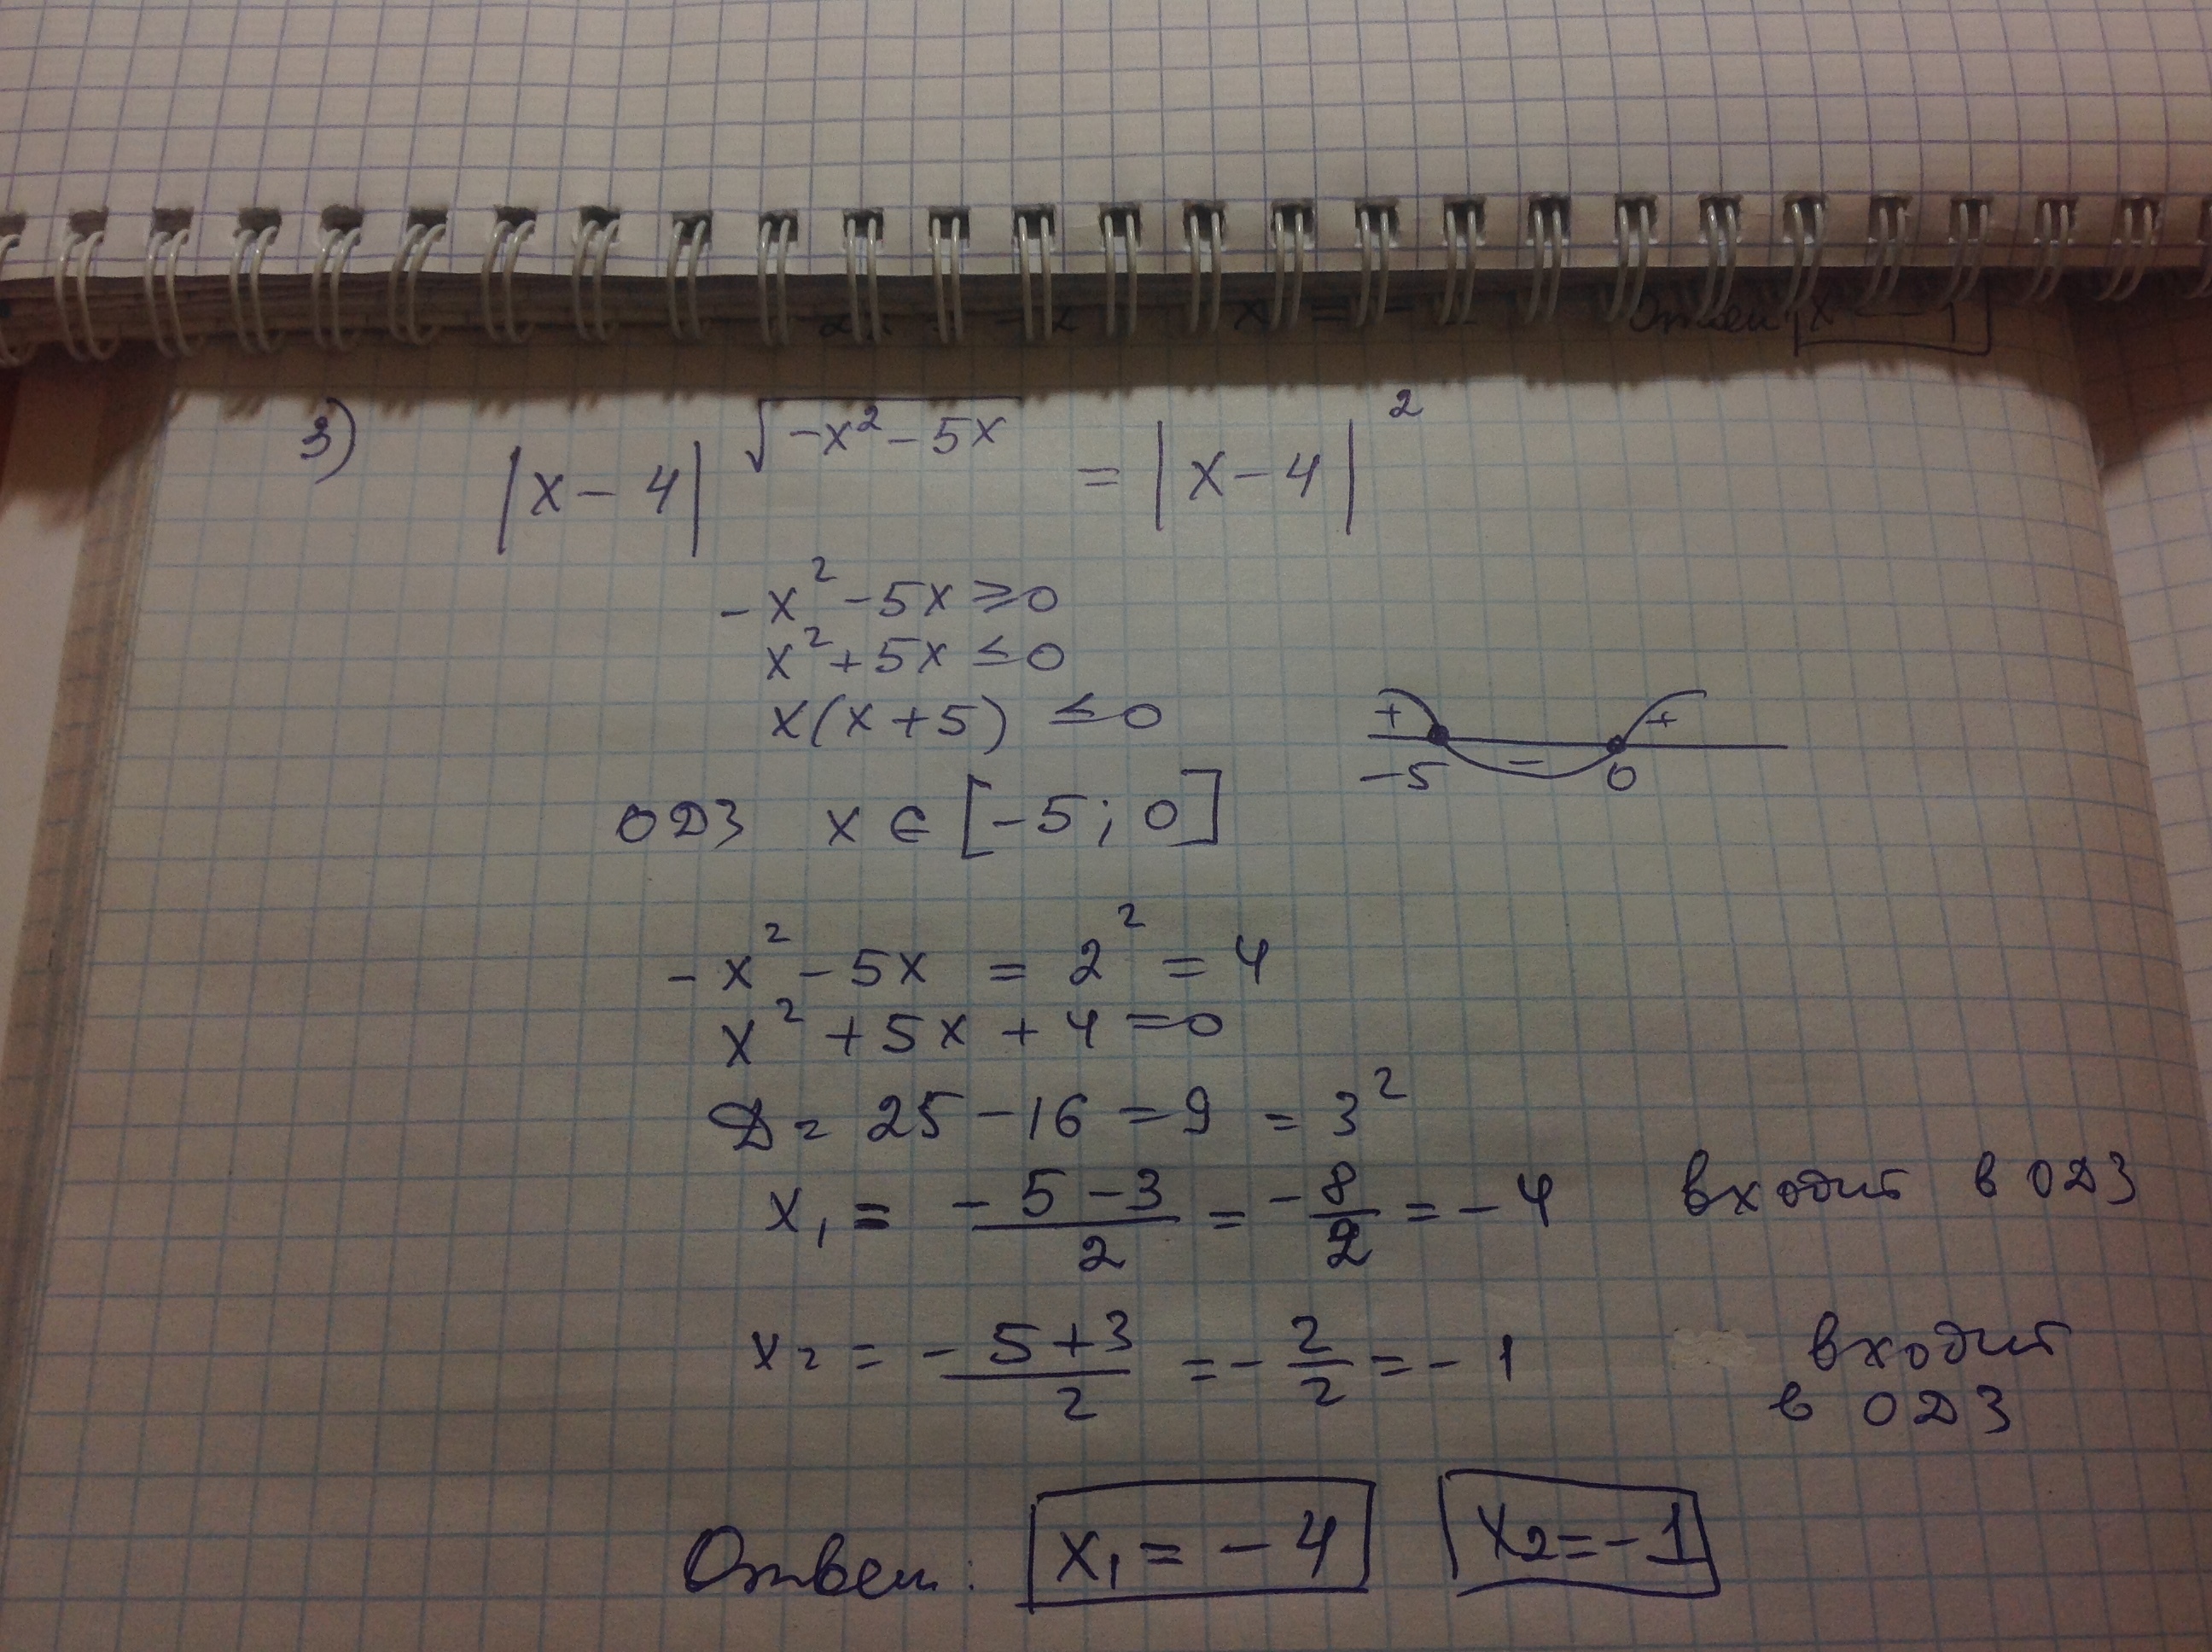 x = - Ответ x = -1
3) |x-4|^{√(-x²-5x)} = |x-4|²
-x²-5x ≥ 0
x²+5x ≤ 0
x(x+5) ≤ 0
+ - +
-5 0
ОДЗ x ∈ [-5; 0]
-x²-5x = 2² = 4
x²+5x+4=0
D = 25-16=9 = 3²
x₁ = (-5-3)/2 = -8/2 = -4 входит в ОДЗ
x₂ = (-5+3)/2 = -2/2 = -1 входит
в ОДЗ
Ответ: x₁ = -4 x₂=-1